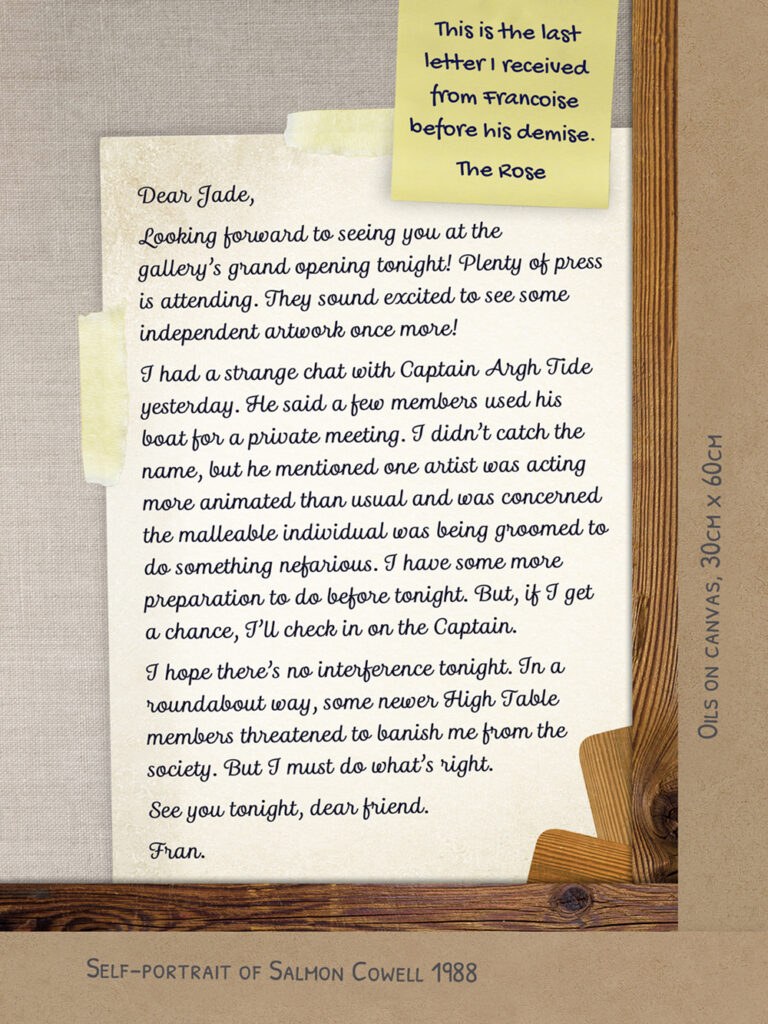 This is the last
letter I received
from Francoise
before his demise.
The Rose
Dear Jade,
Looking forward to seeing you at the
gallery's grand opening tonight! Plenty of press
is attending. They sound excited to see some
independent artwork once more!
I had a strange chat with Captain Argh Tide
yesterday. He said a few members used his
boat for a private meeting. I didn't catch the
name, but he mentioned one artist was acting
more animated than usual and was concerned
the malleable individual was being groomed to
do something nefarious. I have some more
preparation to do before tonight. But, if I get
a chance, I'll check in on the Captain.
I hope there's no interference tonight. In a
roundabout way, some newer High Table
members threatened to banish me from the
society. But I must do what's right.
See you tonight, dear friend.
Fran.
Oils on canvas, 30cm x 60cm
Self-portrait of Salmon Cowell 1988